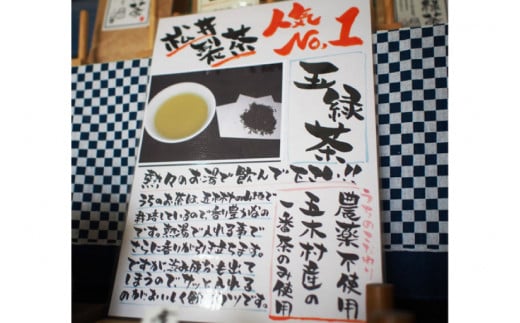 松井製茶
人気
No.1
玉緑茶
熱々のお湯で飲んで下さい!!
うちのこだわり
農薬不使用
五木村産の
一番茶のみ使用
うちのお茶は、五木村の山間で
栽培しているので香り豊かなの
です。熱湯で入れる事で
さらに香りが引き立ちます。
ですが渋み成分も出て
しまうのでサッと入れる
のがおいしく飲むコツです。
茶